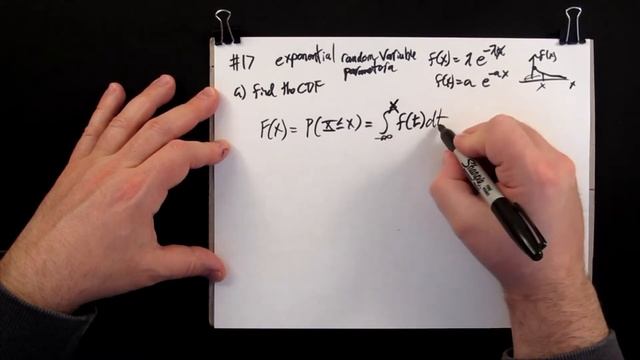 #17 exponential random variable f(x) = λ e^{-λx}
parameter a f(x) = a e^{-ax}
f(x)
x x
a) find the CDF
F(x) = P(X ≤ x) = ∫_{-∞}^{x} f(t)dt
Sharpie